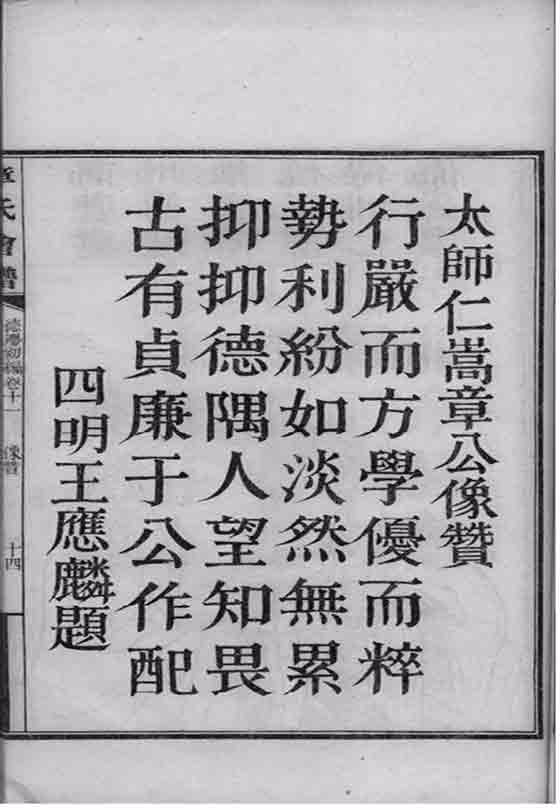 太師仁嵩章公像贊
行嚴而方學優而粹
勢利紛如淡然無累
抑抑德隅人望知畏
古有貞廉于公作配
四明王應麟題
章氏會譜
德慶初編卷十一
像贊
十四